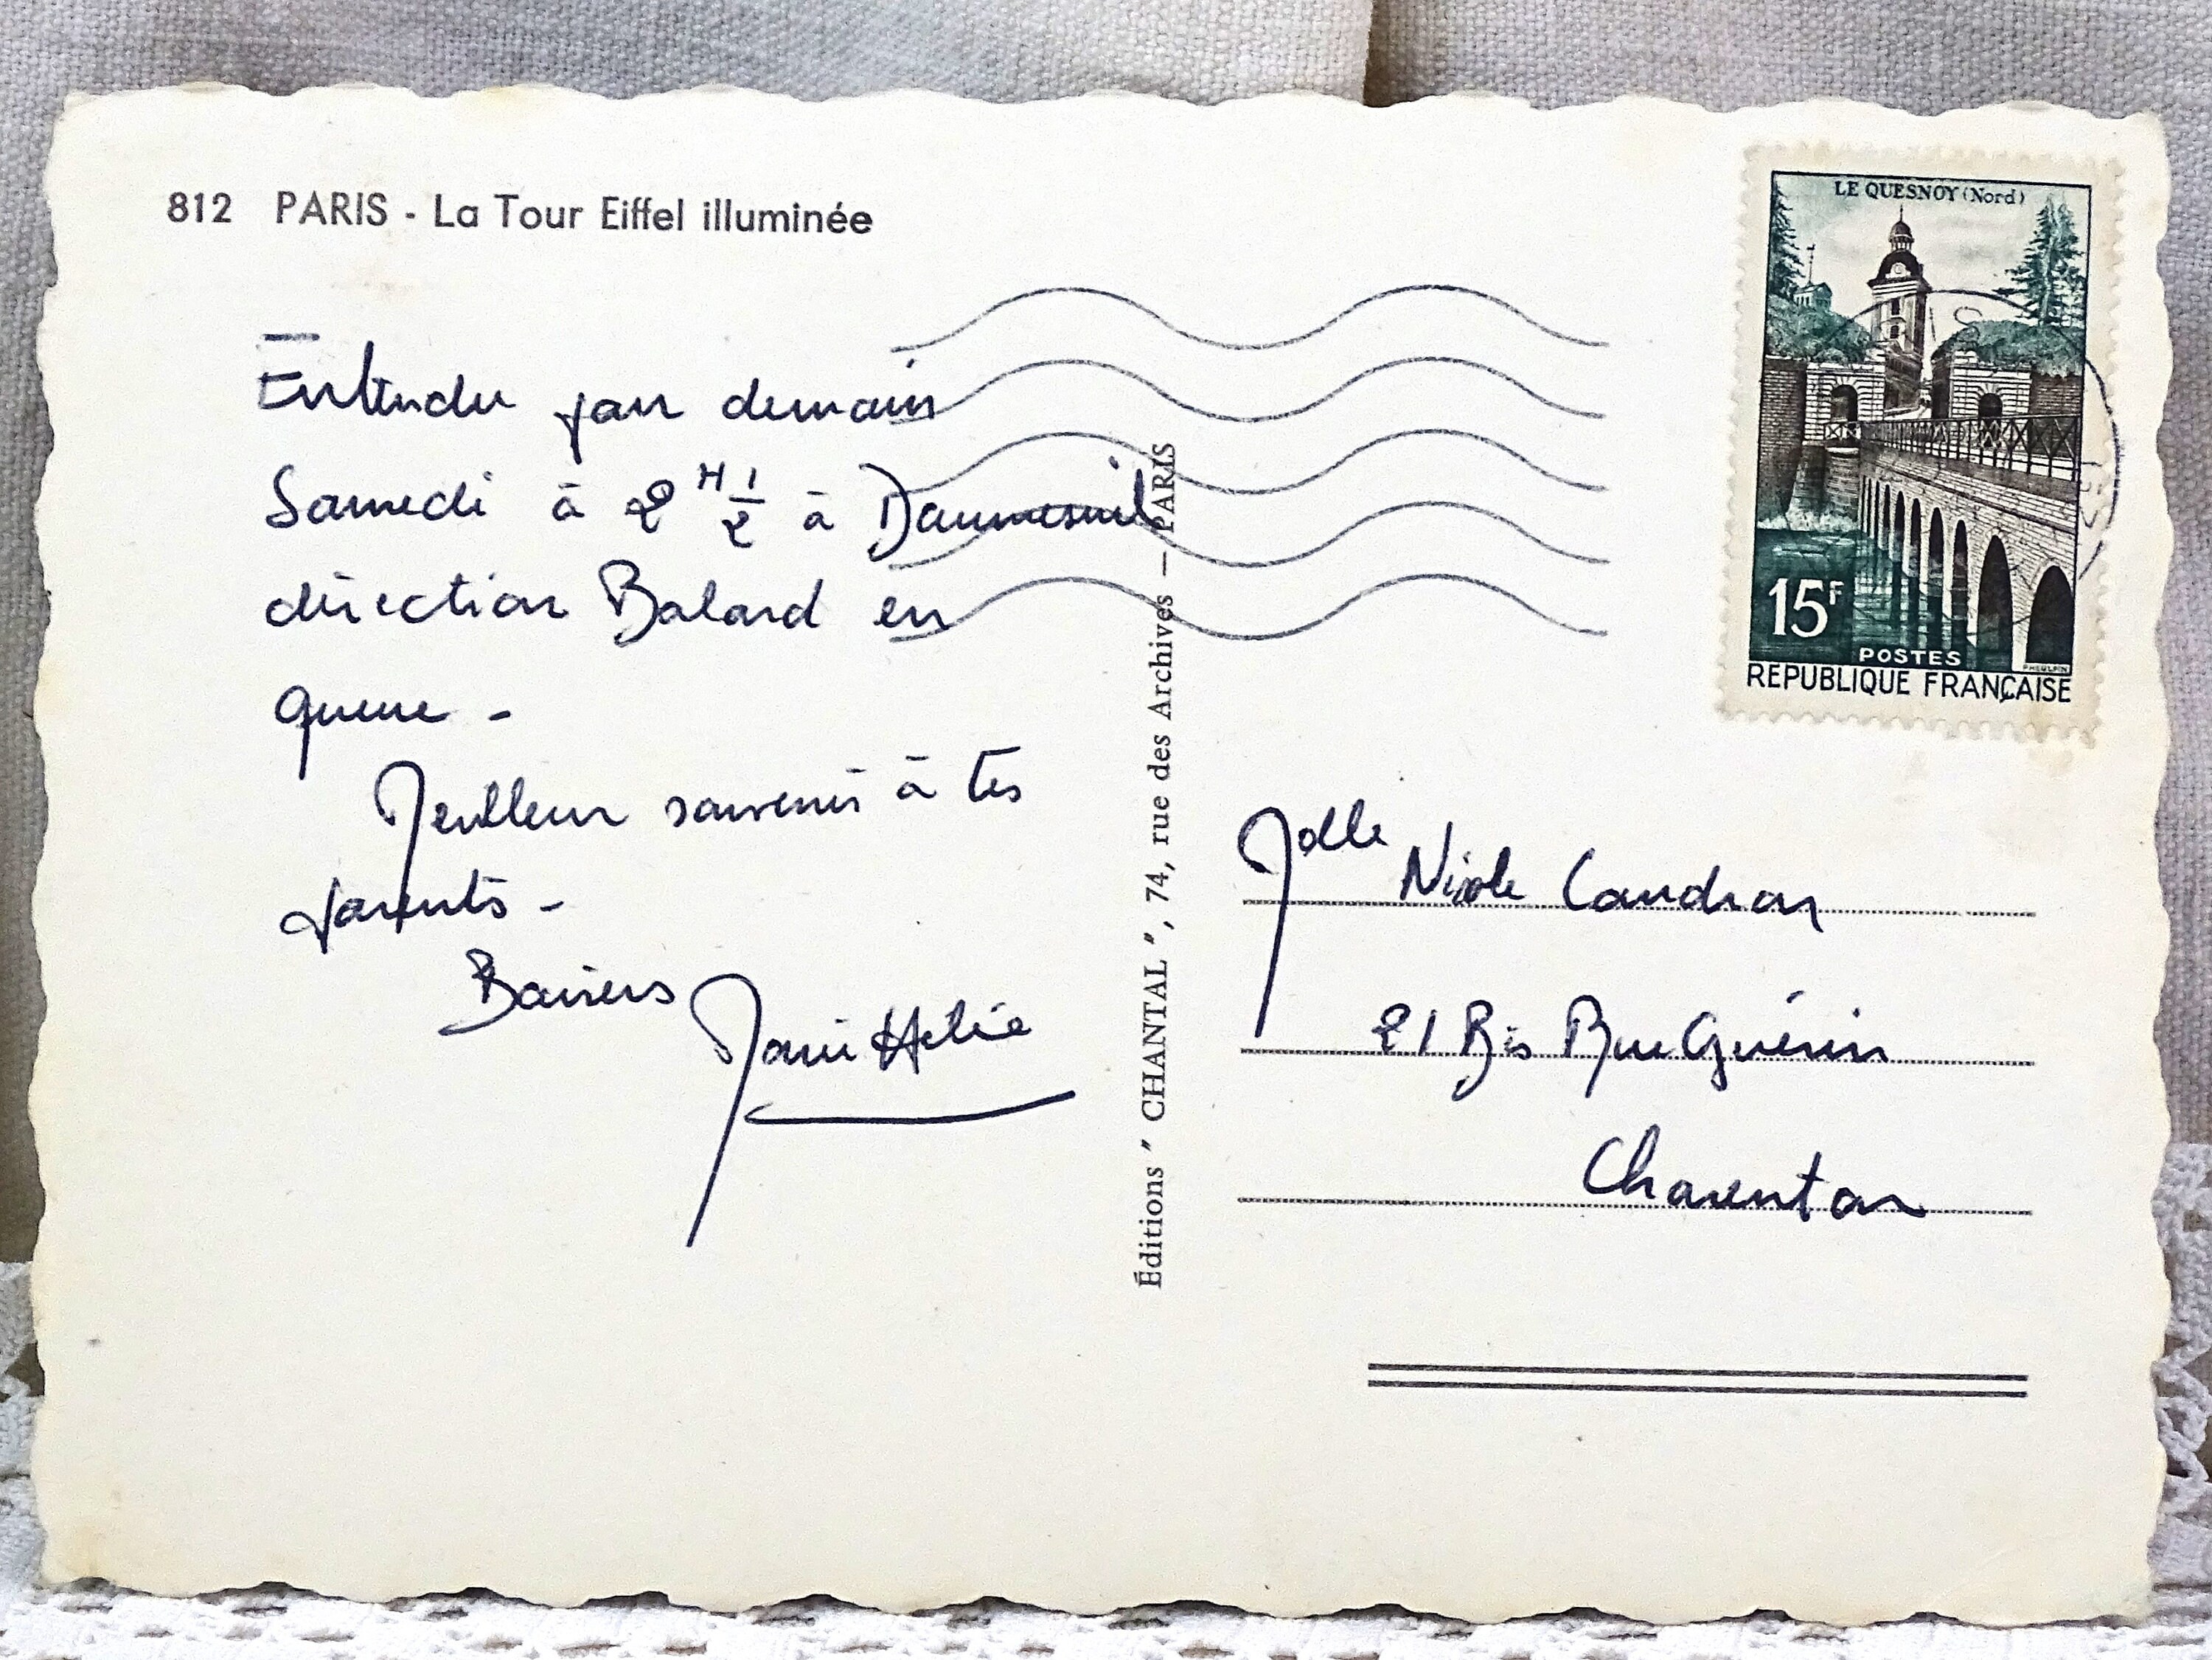 812 PARIS - La Tour Eiffel illuminée
Entendu pour demain
Samedi à 2 H 1/2 à Daumesnil
direction Balard en
queue -
Meilleur souvenir à tes
parents -
Baisers
Marie Hélie
Éditions " CHANTAL ", 74, rue des Archives — PARIS
LE QUESNOY (Nord)
15F
POSTES
PHEULPIN
REPUBLIQUE FRANÇAISE
Melle Nicole Caudron
21 Bis Rue Guérin
Charenton